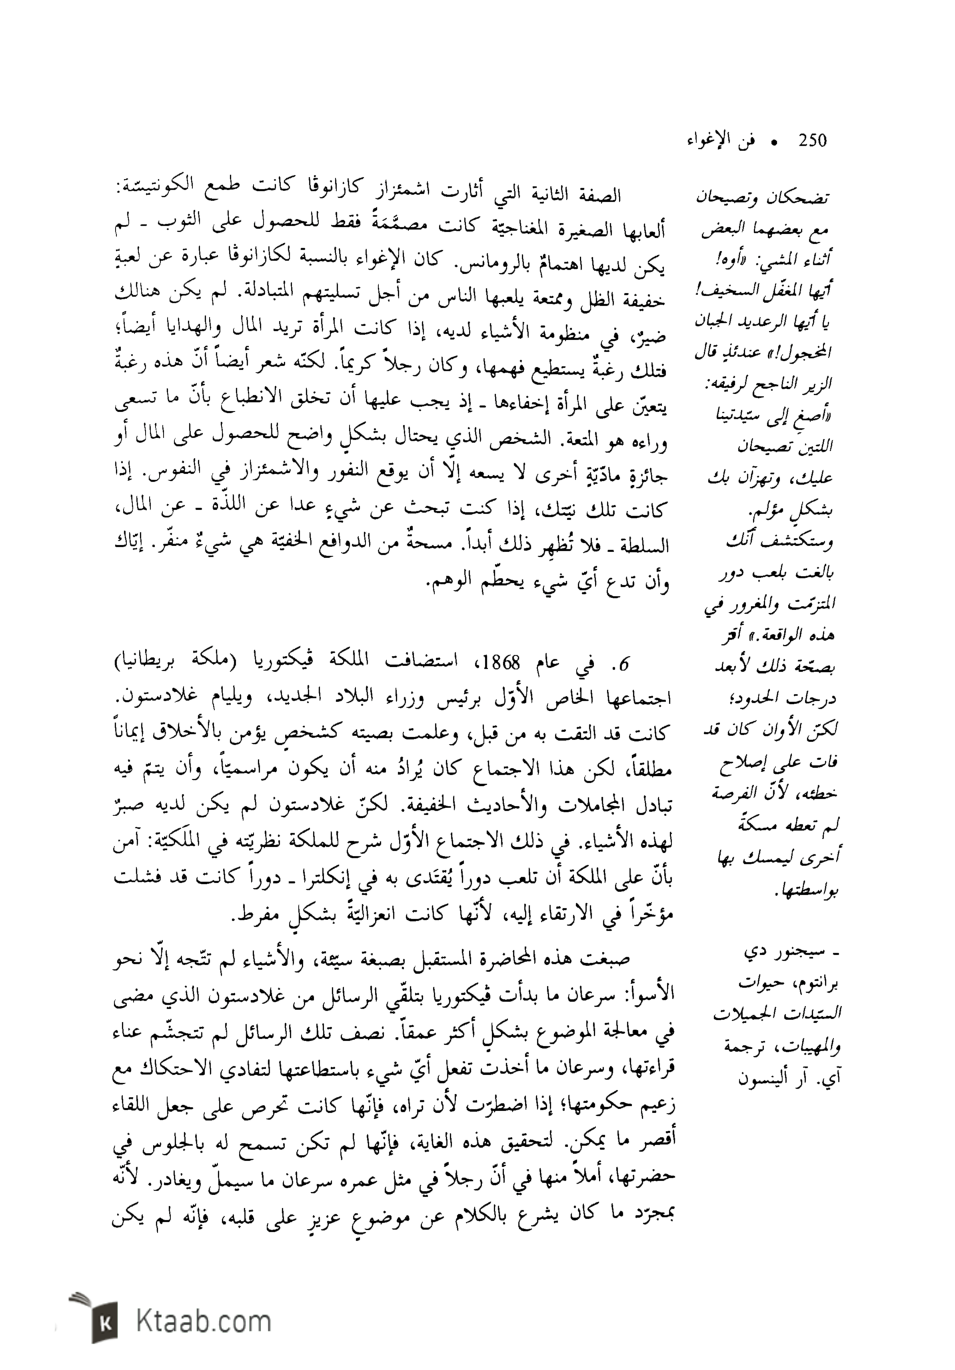 250 • فن الإغواء
الصفة الثانية التي أثارت اشمئزاز كازانوڤا كانت طمع الكونتيسّة:
ألعابها الصغيرة المغناجيّة كانت مصمَّمَةً فقط للحصول على الثوب ـ لم
يكن لديها اهتمامٌ بالرومانس. كان الإغواء بالنسبة لكازانوڤا عبارة عن لعبةٍ
خفيفة الظل وممتعة يلعبها الناس من أجل تسليتهم المتبادلة. لم يكن هنالك
ضيرٌ، في منظومة الأشياء لديه، إذا كانت المرأة تريد المال والهدايا أيضاً؛
فتلك رغبةٌ يستطيع فهمها، وكان رجلاً كريماً. لكنّه شعر أيضاً أنّ هذه رغبةٌ
يتعيّن على المرأة إخفاءها ـ إذ يجب عليها أن تخلق الانطباع بأنّ ما تسعى
وراءه هو المتعة. الشخص الذي يحتال بشكلٍ واضح للحصول على المال أو
جائزةٍ مادّيّةٍ أخرى لا يسعه إلّا أن يوقع النفور والاشمئزاز في النفوس. إذا
كانت تلك نيّتك، إذا كنت تبحث عن شيءٍ عدا عن اللذّة ـ عن المال،
السلطة ـ فلا تُظهِر ذلك أبداً. مسحةٌ من الدوافع الخفيّة هي شيءٌ منفّر. إيّاك
وأن تدع أيّ شيء يحطّم الوهم.
6. في عام 1868، استضافت الملكة ڤيكتوريا (ملكة بريطانيا)
اجتماعها الخاص الأوّل برئيس وزراء البلاد الجديد، ويليام غلادستون.
كانت قد التقت به من قبل، وعلمت بصيته كشخصٍ يؤمن بالأخلاق إيماناً
مطلقاً، لكن هذا الاجتماع كان يُرادُ منه أن يكون مراسميّاً، وأن يتمّ فيه
تبادل المجاملات والأحاديث الخفيفة. لكنّ غلادستون لم يكن لديه صبرٌ
لهذه الأشياء. في ذلك الاجتماع الأوّل شرح للملكة نظريّته في المَلَكيّة: آمن
بأنّ على الملكة أن تلعب دوراً يُقتَدى به في إنكلترا ـ دوراً كانت قد فشلت
مؤخّراً في الارتقاء إليه، لأنّها كانت انعزاليّةً بشكلٍ مفرط.
صبغت هذه المحاضرة المستقبل بصبغة سيّئة، والأشياء لم تتّجه إلّا نحو
الأسوأ: سرعان ما بدأت ڤيكتوريا بتلقّي الرسائل من غلادستون الذي مضى
في معالجة الموضوع بشكلٍ أكثر عمقاً. نصف تلك الرسائل لم تتجشّم عناء
قراءتها، وسرعان ما أخذت تفعل أيّ شيء باستطاعتها لتفادي الاحتكاك مع
زعيم حكومتها؛ إذا اضطرّت لأن تراه، فإنّها كانت تحرص على جعل اللقاء
أقصر ما يمكن. لتحقيق هذه الغاية، فإنّها لم تكن تسمح له بالجلوس في
حضرتها، أملاً منها في أنّ رجلاً في مثل عمره سرعان ما سيملّ ويغادر. لأنّه
بمجرّد ما كان يشرع بالكلام عن موضوعٍ عزيزٍ على قلبه، فإنّه لم يكن
تضحكان وتصيحان
مع بعضهما البعض
أثناء المشي: «أوه!
أيّها المغفّل السخيف!
يا أيّها الرعديد الجبان
المخجول!» عندئذٍ قال
الزير الناجح لرفيقه:
«أصغِ إلى سيّدتينا
اللتين تصيحان
عليك، وتهزآن بك
بشكلٍ مؤلم.
وستكتشف أنّك
بالغت بلعب دور
المتزمّت والمغرور في
هذه الواقعة.» أقرّ
بصحّة ذلك لأبعد
درجات الحدود؛
لكنّ الأوان كان قد
فات على إصلاح
خطئه، لأنّ الفرصة
لم تعطه مسكةً
أخرى ليمسك بها
بواسطتها.
ـ سيجنور دي
برانتوم، حيوات
السيّدات الجميلات
والمهيبات، ترجمة
آي. آر ألينسون
Ktaab.com